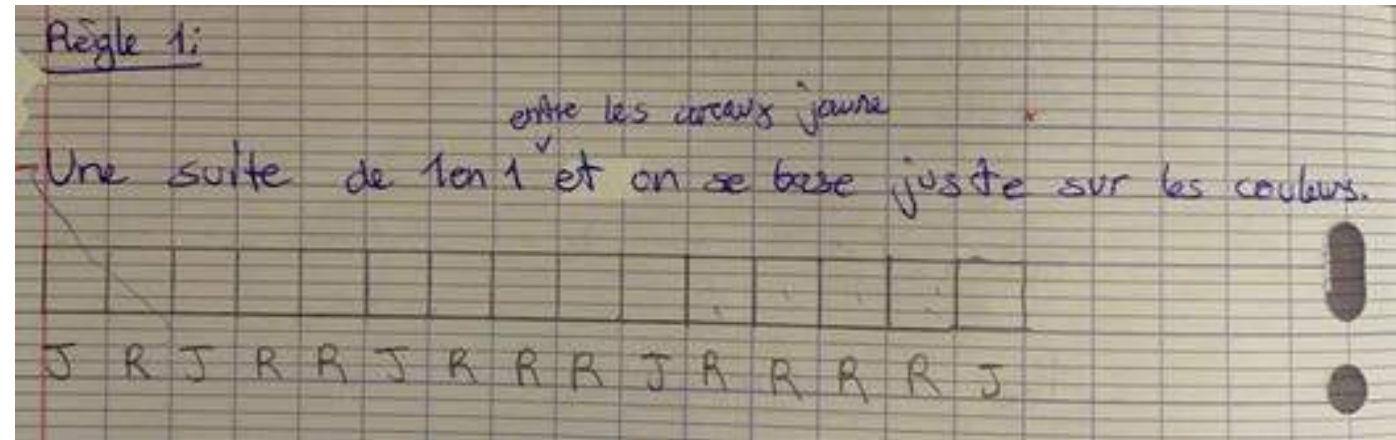 Règle 1:
entre les careaux jaune
Une suite de 1 en 1 et on se base juste sur les couleurs.
J R J R R J R R R J R R R R J